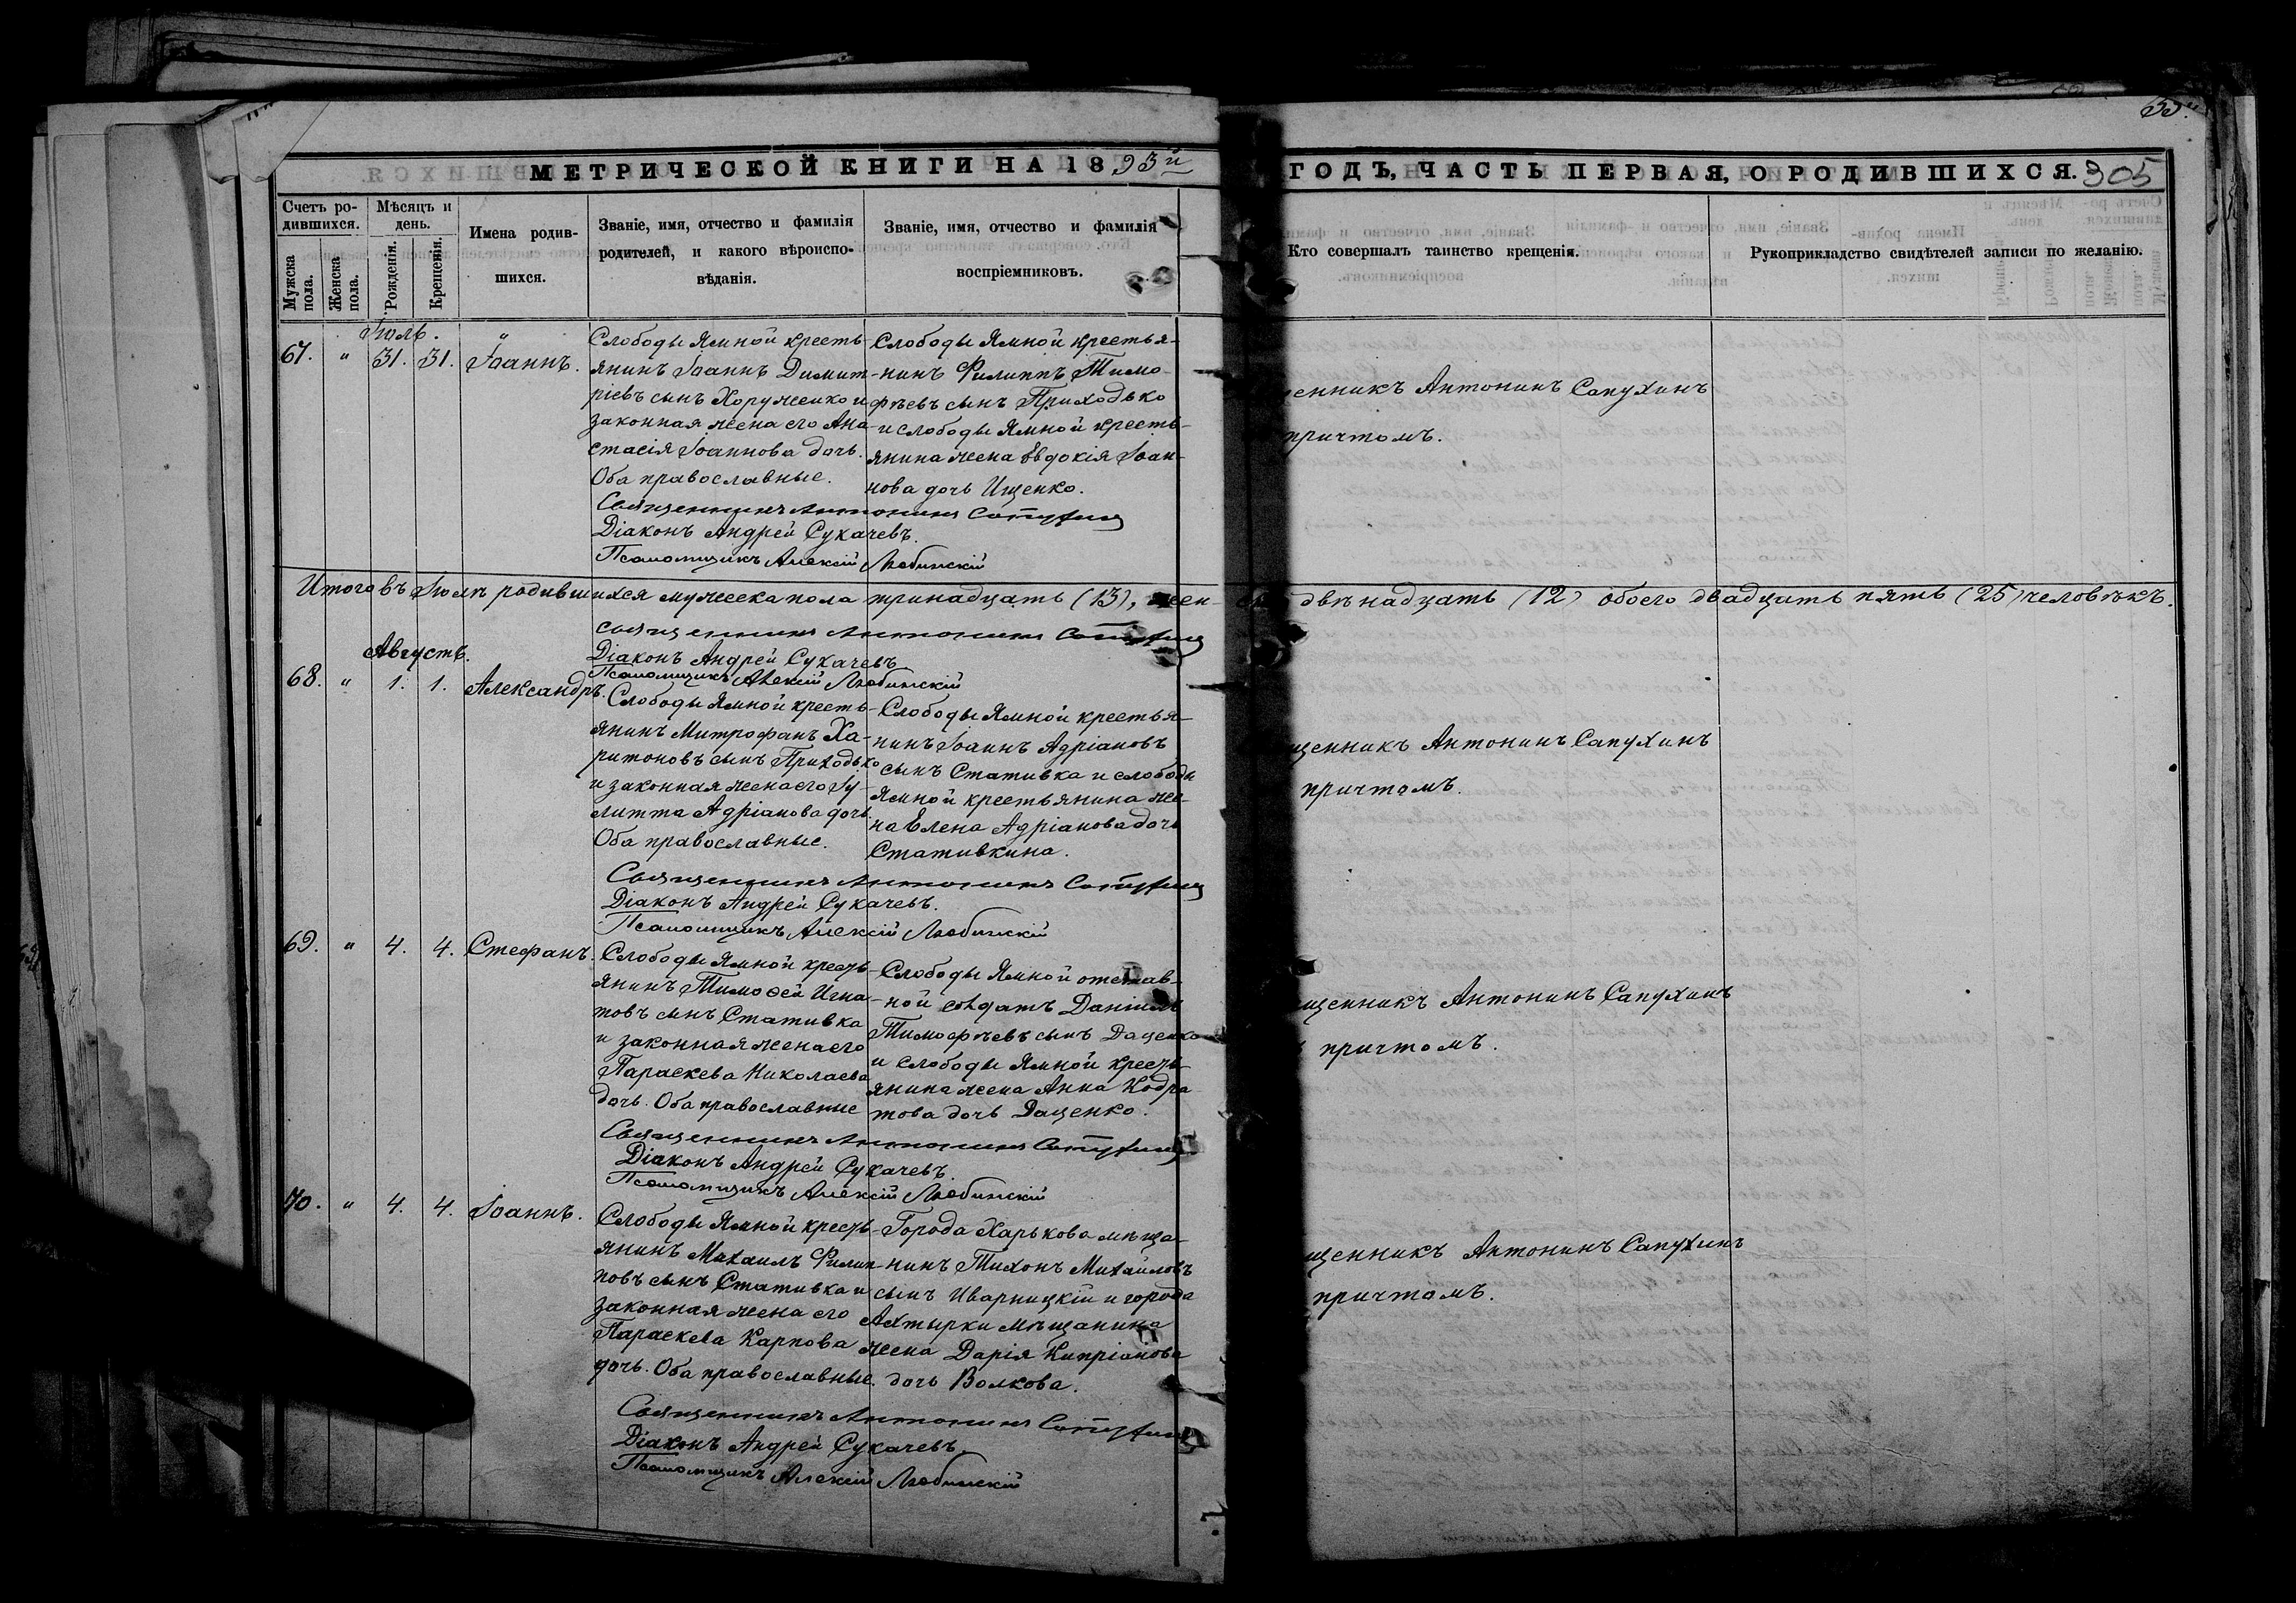 55.
МЕТРИЧЕСКОЙ КНИГИ НА 1893й
ГОДЪ, ЧАСТЬ ПЕРВАЯ, О РОДИВШИХСЯ.
305
Счетъ ро-
дившихся.
Мужска
пола.
Женска
пола.
Мѣсяцъ и
день.
Рожденія.
Крещенія.
Имена родив-
шихся.
Званіе, имя, отчество и фамилія
родителей, и какого вѣроиспо-
вѣданія.
Званіе, имя, отчество и фамилія
воспріемниковъ.
Кто совершалъ таинство крещенія.
Рукоприкладство свидѣтелей записи по желанію.
Іюль.
67. " 31. 31. Іоаннъ.
Слободы Ямной кресть-
янинъ Іоаннъ Димит-
ріевъ сынъ Хоруженко и
законная жена его Ана-
стасія Іоаннова дочь.
Оба православные.
Слободы Ямной крестья-
нинъ Филиппъ Тимо-
фѣевъ сынъ Приходько
и слободы Ямной кресть-
янина жена Евдокія Іоан-
нова дочь Ищенко.
щенникъ Антонинъ Сапухинъ
причтомъ.
Священникъ Антонинъ Сапухинъ
Діаконъ Андрей Сукачевъ.
Псаломщикъ Алексій Любинскій
Итого въ Іюлѣ родившихся мужеска пола тринадцать (13), жен- двѣнадцать (12) обоего двадцать пять (25) человѣкъ.
Священникъ Антонинъ Сапухинъ
Діаконъ Андрей Сукачевъ
Псаломщикъ Алексій Любинскій
Августъ.
68. " 1. 1. Александръ.
Слободы Ямной кресть-
янинъ Митрофанъ Ха-
ритоновъ сынъ Приходько
и законная жена его Іу-
литта Адріанова дочь.
Оба православные.
Слободы Ямной крестья-
нинъ Іоаннъ Адріановъ
сынъ Стативка и слободы
Ямной крестьянина же-
на Елена Адріанова дочь
Стативкина.
щенникъ Антонинъ Сапухинъ
причтомъ.
Священникъ Антонинъ Сапухинъ
Діаконъ Андрей Сукачевъ.
Псаломщикъ Алексій Любинскій
69. " 4. 4. Стефанъ.
Слободы Ямной кресть-
янинъ Тимофей Игна-
товъ сынъ Стативка
и законная жена его
Параскева Николаева
дочь. Оба православные
Слободы Ямной отстав-
ной солдатъ Даніилъ
Тимофѣевъ сынъ Даценко
и слободы Ямной кресть-
янина жена Анна Кодра
това дочь Даценко.
щенникъ Антонинъ Сапухинъ
причтомъ.
Священникъ Антонинъ Сапухинъ
Діаконъ Андрей Сукачевъ.
Псаломщикъ Алексій Любинскій
70. " 4. 4. Іоаннъ.
Слободы Ямной кресть-
янинъ Михаилъ Филип-
повъ сынъ Стативка и
законная жена его
Параскева Карпова
дочь. Оба православные.
Города Харькова мѣща-
нинъ Тихонъ Михайловъ
сынъ Иварницкій и города
Ахтырки мѣщанина
жена Дарія Кипріанова
дочь Волкова.
щенникъ Антонинъ Сапухинъ
причтомъ.
Священникъ Антонинъ Сапухинъ
Діаконъ Андрей Сукачевъ.
Псаломщикъ Алексій Любинскій